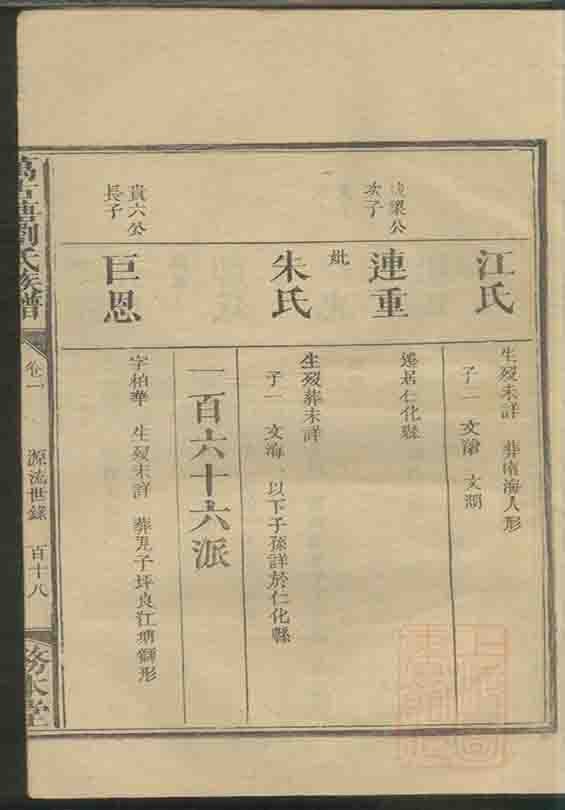 江氏
生歿未詳 葬南海人形
子二 文 文澗
梁公
次子
連重
遷居仁化縣
妣
朱氏
生歿葬未詳
子一 文海 以下子孫詳於仁化縣
一百六十六派
貴六公
長子
巨恩
字柏華 生歿未詳 葬兎子坪良江塘獅形
劉氏族譜
卷一
源流世錄
百十八
務本堂